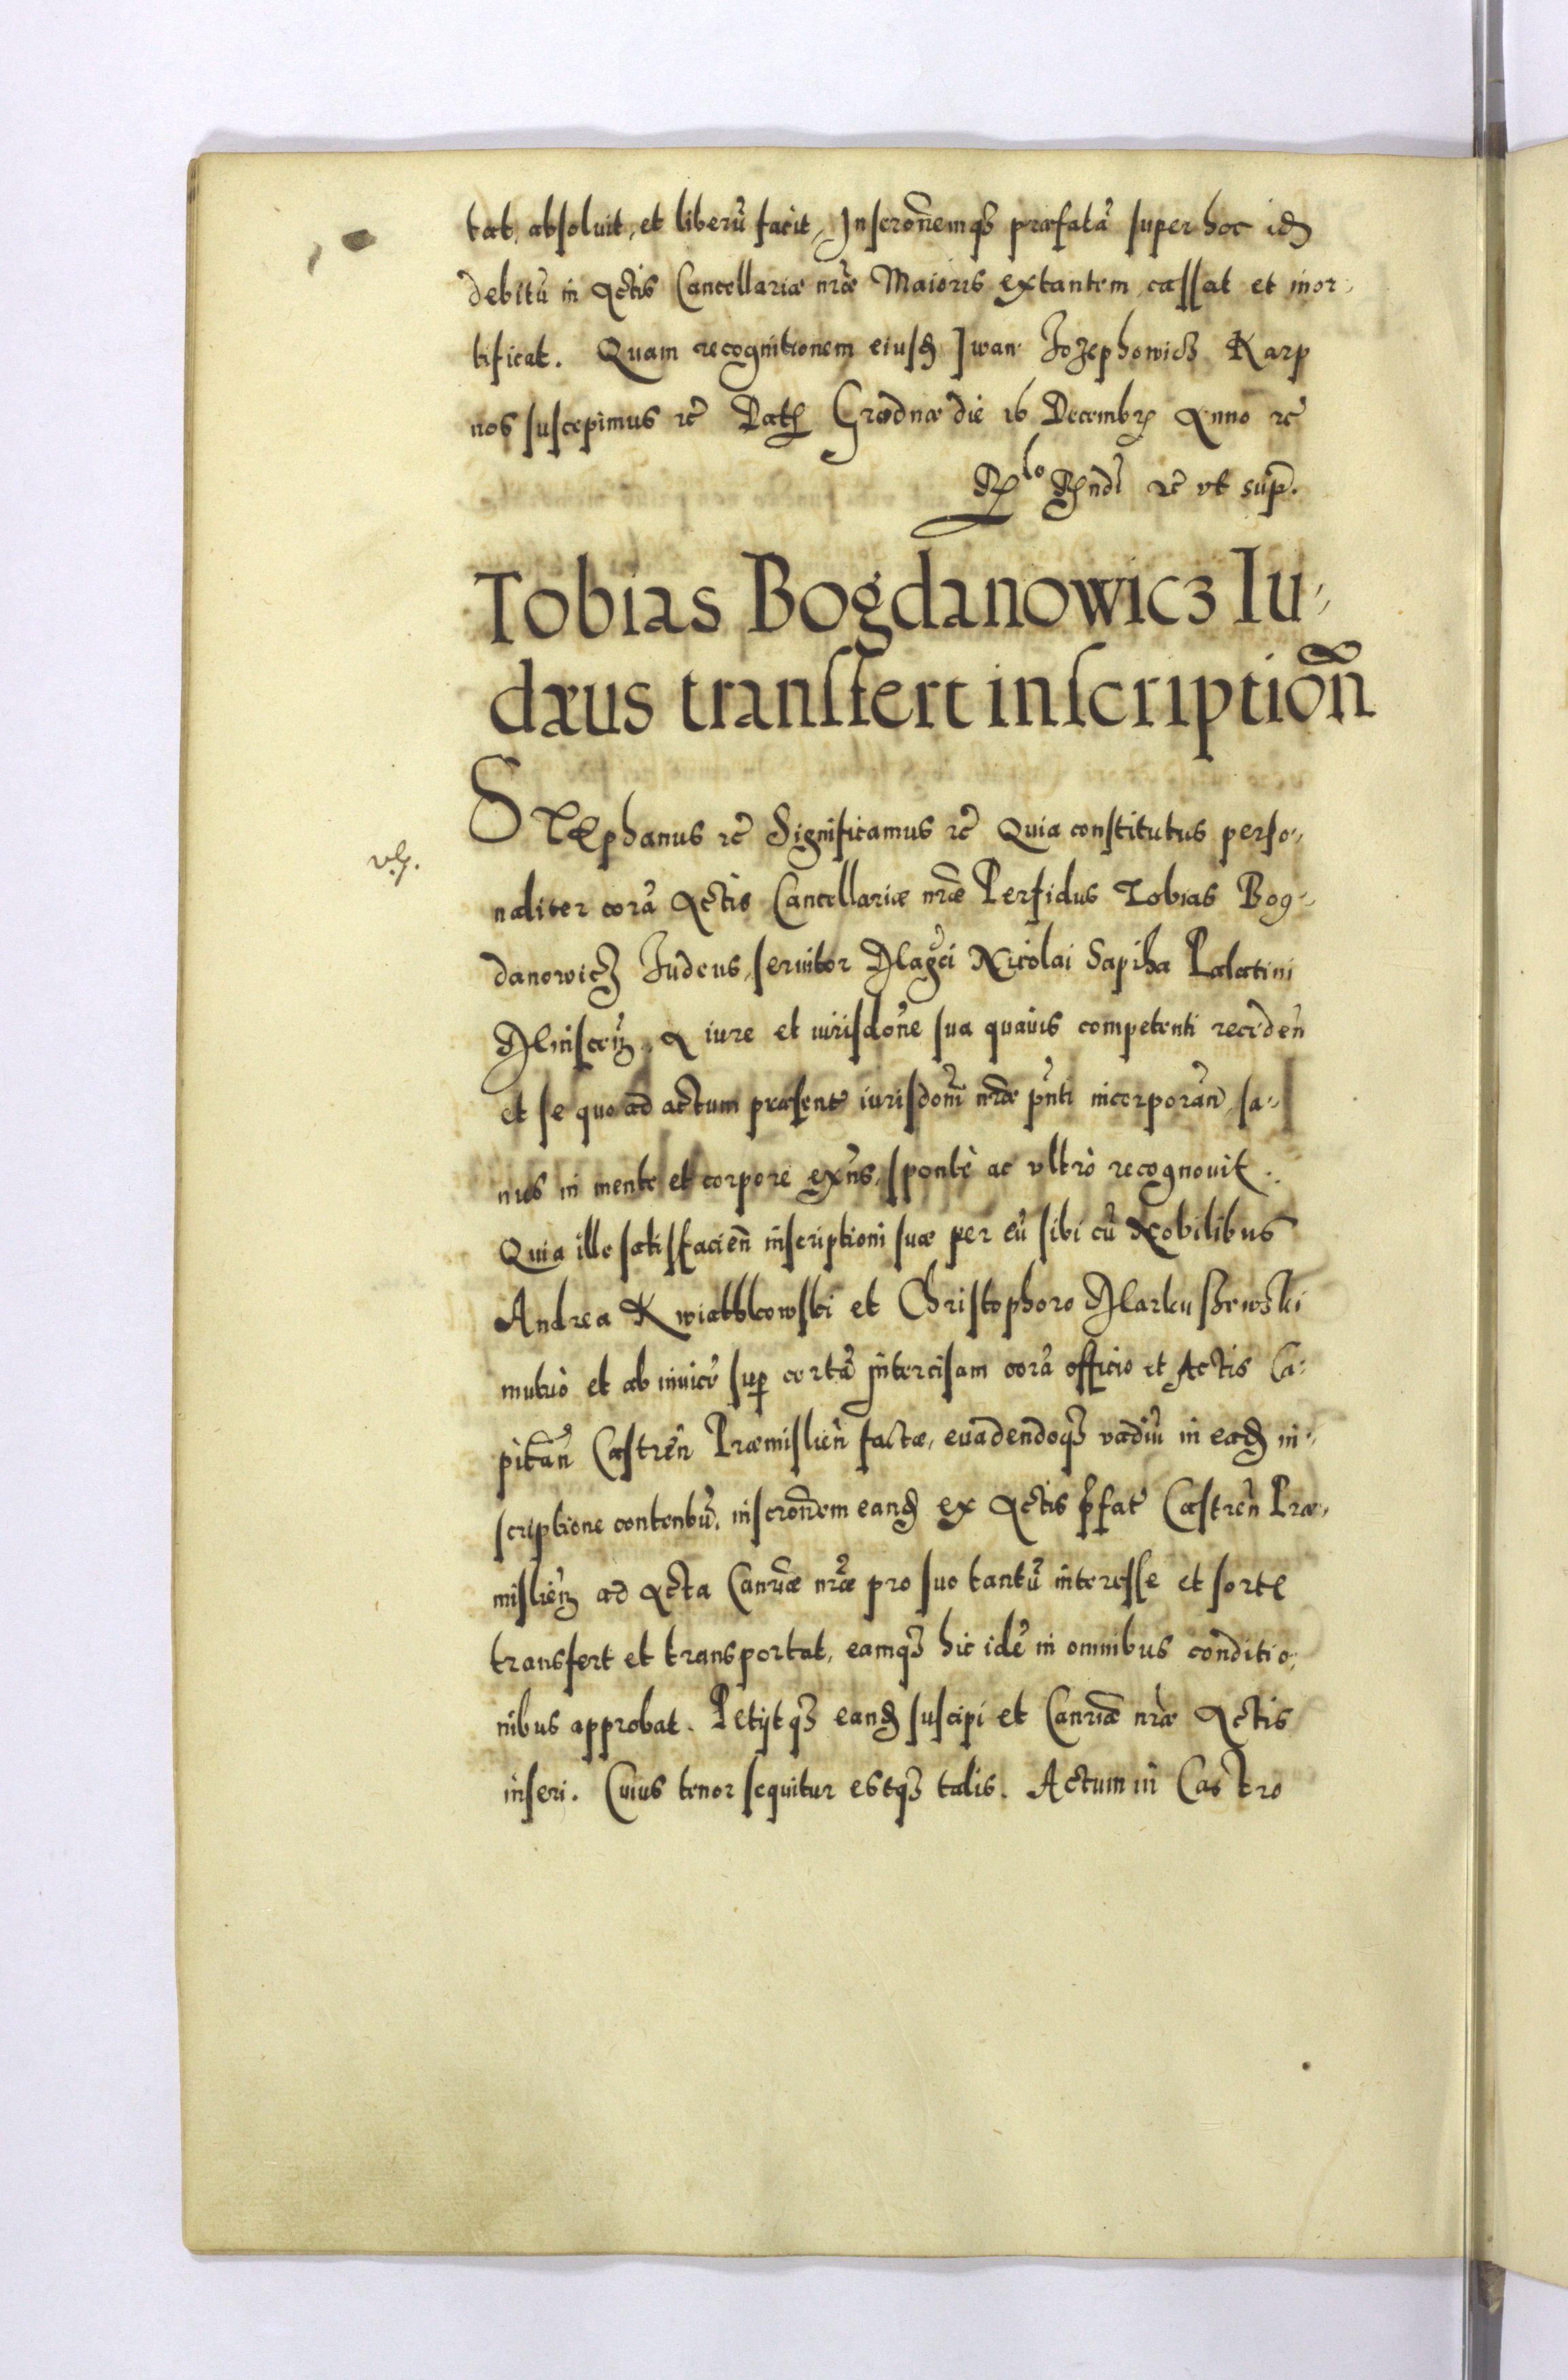 tat, absoluit, et liberũ facit, Inscrõnemqȝ præfatã super hoc idẽ
debitũ in Actis Cancellariæ nræ Maioris extantem cassat et mor-
tificat. Quam recognitionem eiusd Iwan Jozephowicz Karp
nos suscepimus etc Dat Grodnæ die 16 Decembr Anno etc
Rndi etc vt sup.
Tobias Bogdanowicz Iu-
dæus transfert inscription̄
Stephanus etc Significamus etc Quia constitutus perso-
naliter corã Actis Cancellariæ nræ Perfidus Tobias Bog-
danowicz Judeus, seruitor Magci Nicolai Sapiha Palatini
Minscen, A iure et iurisdone sua quauis competenti receden
et se quo ad actum præsentẽ iurisdoni nræ pnti incorporan, sa-
nus in mente et corpore exns, spontè ac vltrò recognouit.
Quia ille satisfacien inscriptioni suæ per eũ sibi cũ Nobilibus
Andrea Kwiatkowski et Christophoro Markuszewski
mutuò et ab inuicẽ sup certã intercisam corã officio et Actis Ca-
pitan Castren Præmislien factæ, euadendoqȝ vadiũ in ead in-
scriptione contentũ, inscronem eand ex Actis pfat Castren Præ-
mislien ad Acta Canriæ nræ pro suo tantũ interesse et sorte
transfert et transportat, eamqȝ hic idẽ in omnibus conditio-
nibus approbat. Petijtqȝ eand suscipi et Canriæ nræ Actis
inseri. Cuius tenor sequitur estqȝ talis. Actum in Castro